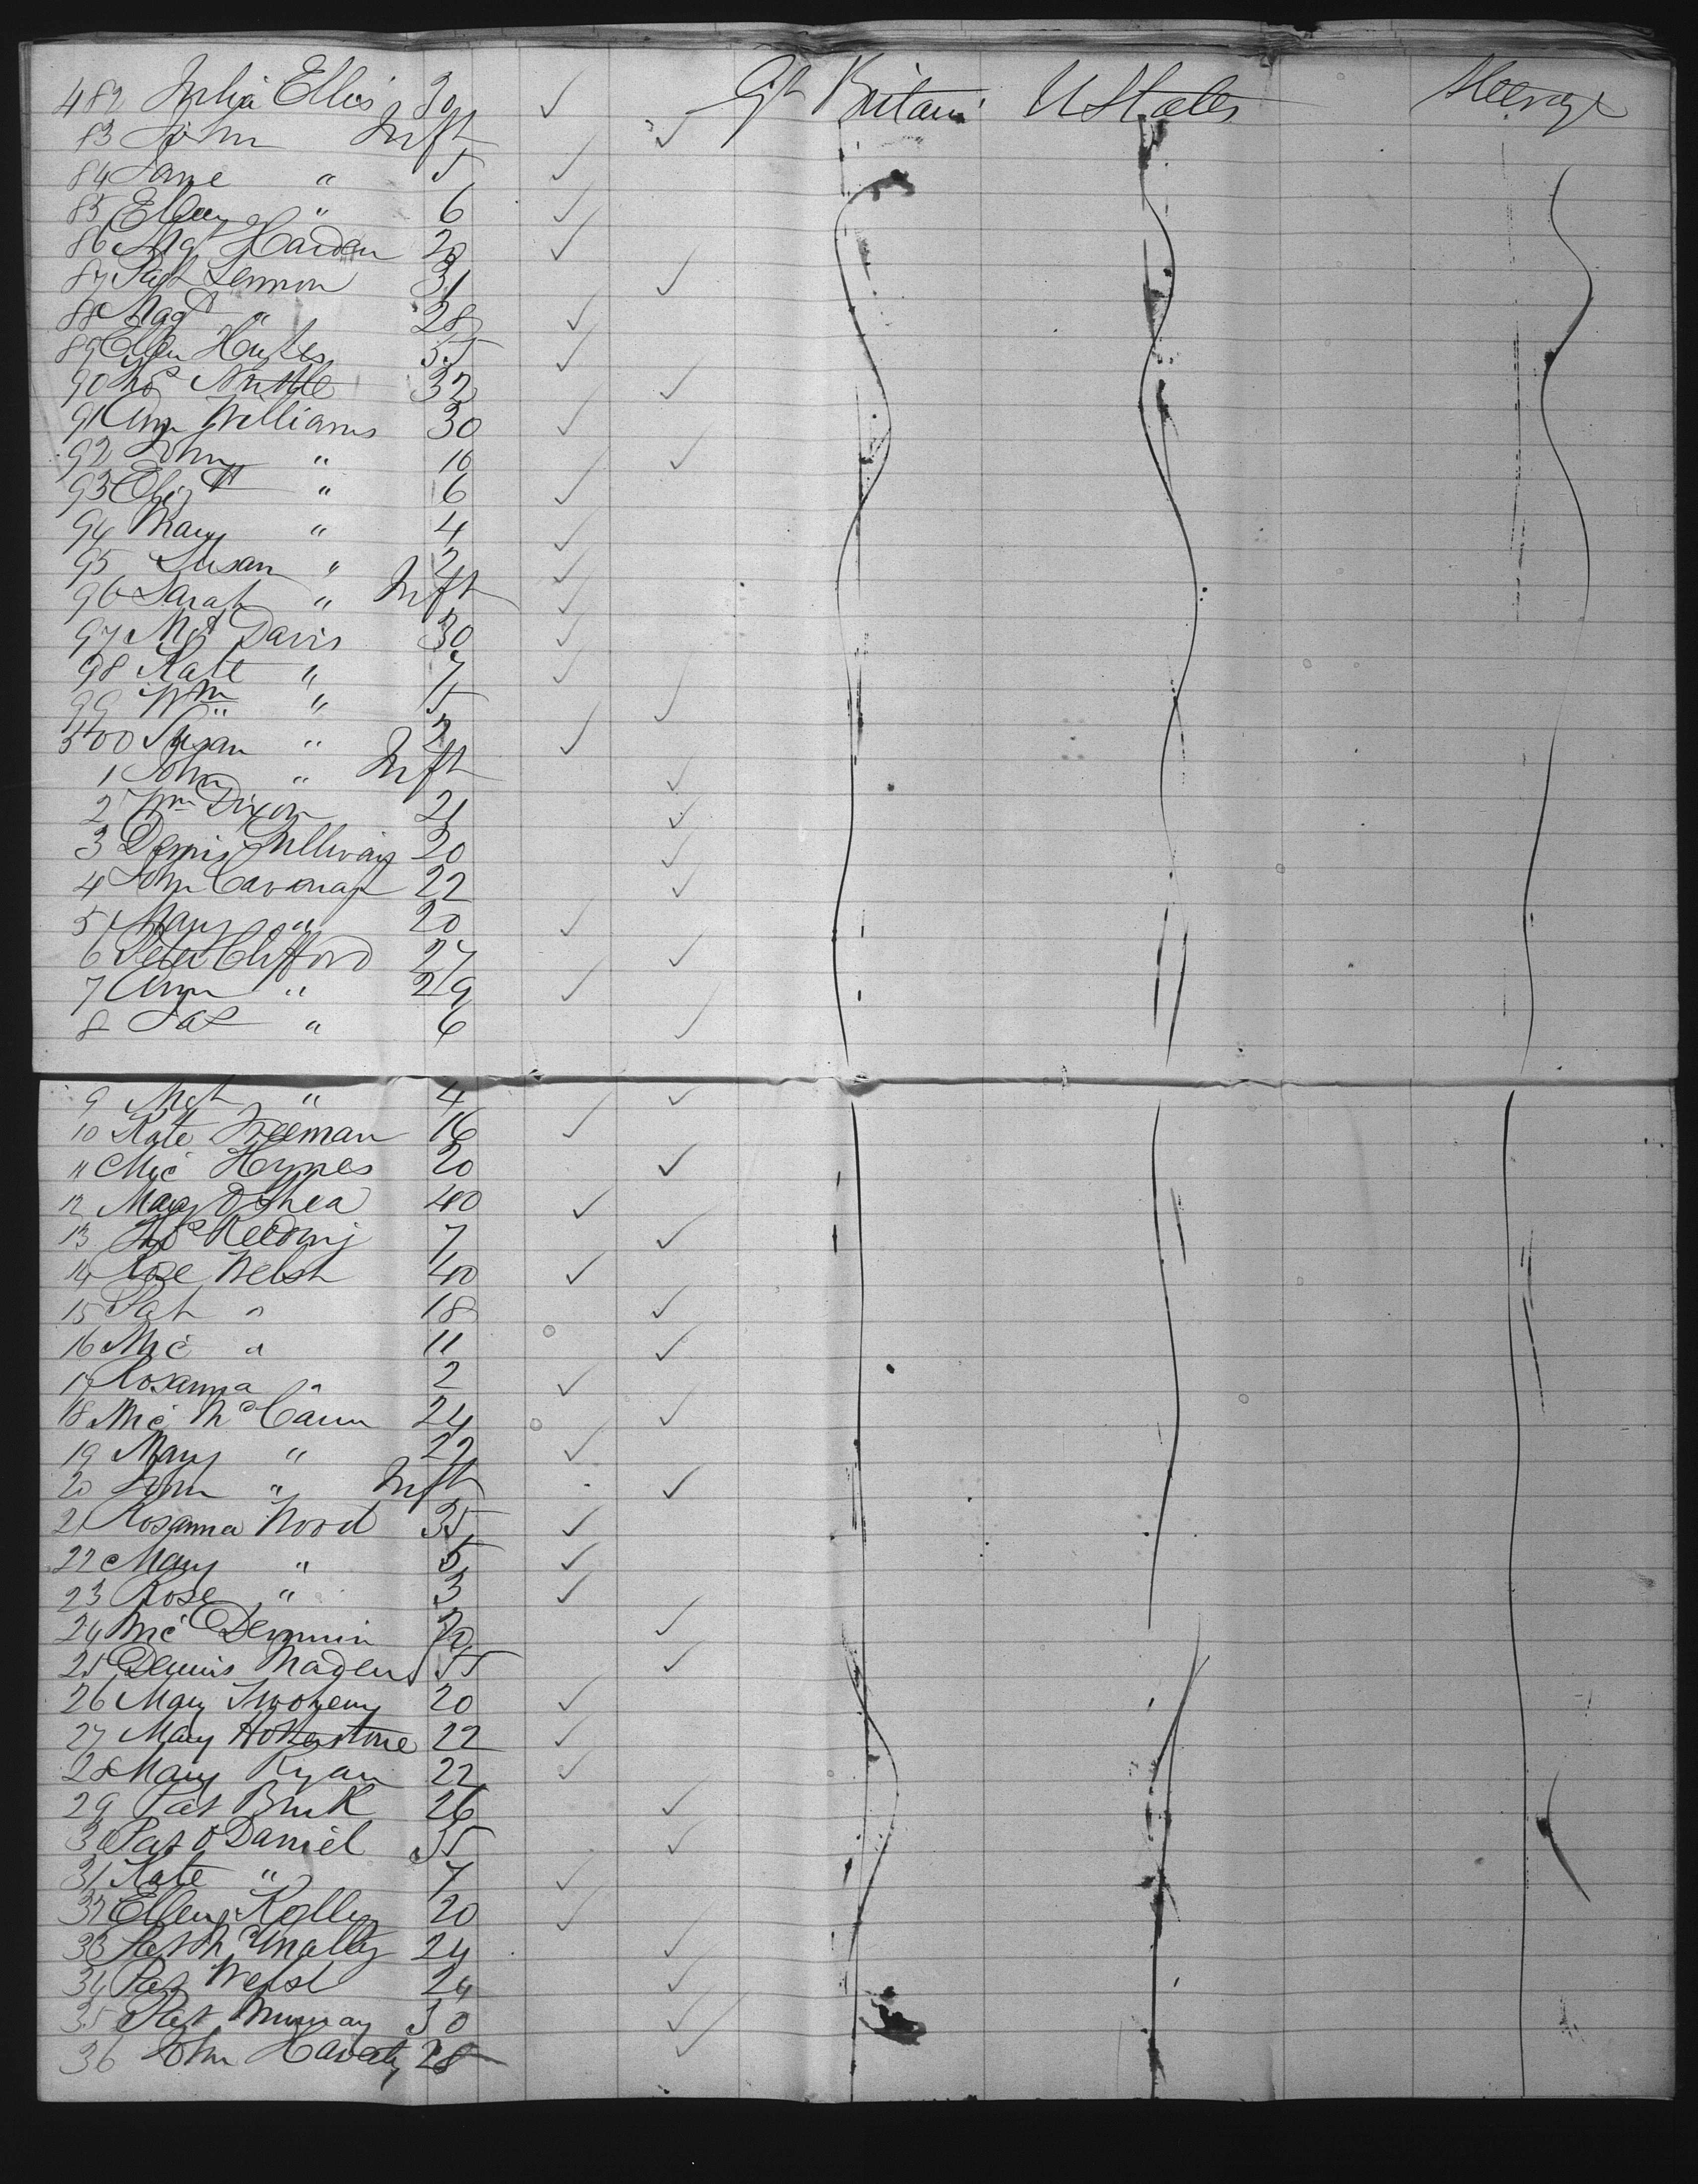 482 Julia Ellis 30 ✓ Gt Britain U States Steerage
83 John Inft ✓
84 Jane " 5 ✓
85 Ellen " 6 ✓
86 Mgt Harden 20 ✓
87 Pat Lennon 31 ✓
88 Magt " 28 ✓
89 Ellen 35 ✓
90 Thos Nuttle 32 ✓
91 Ann Williams 30 ✓
92 John " 10 ✓
93 Elizth " 6 ✓
94 Mary " 4 ✓
95 Susan " 2 ✓
96 Sarah " Inft ✓
97 Mgt Davis 30 ✓
98 Kate " 7 ✓
99 Wm " 5 ✓
500 Susan " 2 ✓
1 John " Inft ✓
2 Wm Dixon 21 ✓
3 Dennis Sullivan 20 ✓
4 John Cavanagh 22 ✓
5 Mary " 20 ✓
6 Peter Clifford 27 ✓
7 Ann " 29 ✓
8 Pat " 6 ✓
9 Mgt " 4 ✓
10 Kate Freeman 16 ✓
11 Mic Hynes 20 ✓
12 Mary O Shea 40 ✓
13 Thos Reeding 7 ✓
14 Rose Welsh 40 ✓
15 Pat " 18 ✓
16 Mic " 11 ✓
17 Rosanna " 2 ✓
18 Mic McCann 24 ✓
19 Mary " 22 ✓
20 John " Inft ✓
21 Rosanna Wood 35 ✓
22 Mary " 5 ✓
23 Rose " 3 ✓
24 Mic ✓
25 Dennis 55 ✓
26 Mary Twohemy 20 ✓
27 Mary 22 ✓
28 Mary Ryan 22 ✓
29 Pat 26 ✓
30 Pat O Daniel 55 ✓
31 Kate " 7 ✓
32 Ellen Kelly 20 ✓
33 Pat McAnally 24 ✓
34 Pat Welsh 24 ✓
35 Pat Murray 30 ✓
36 John Haverty 28 ✓